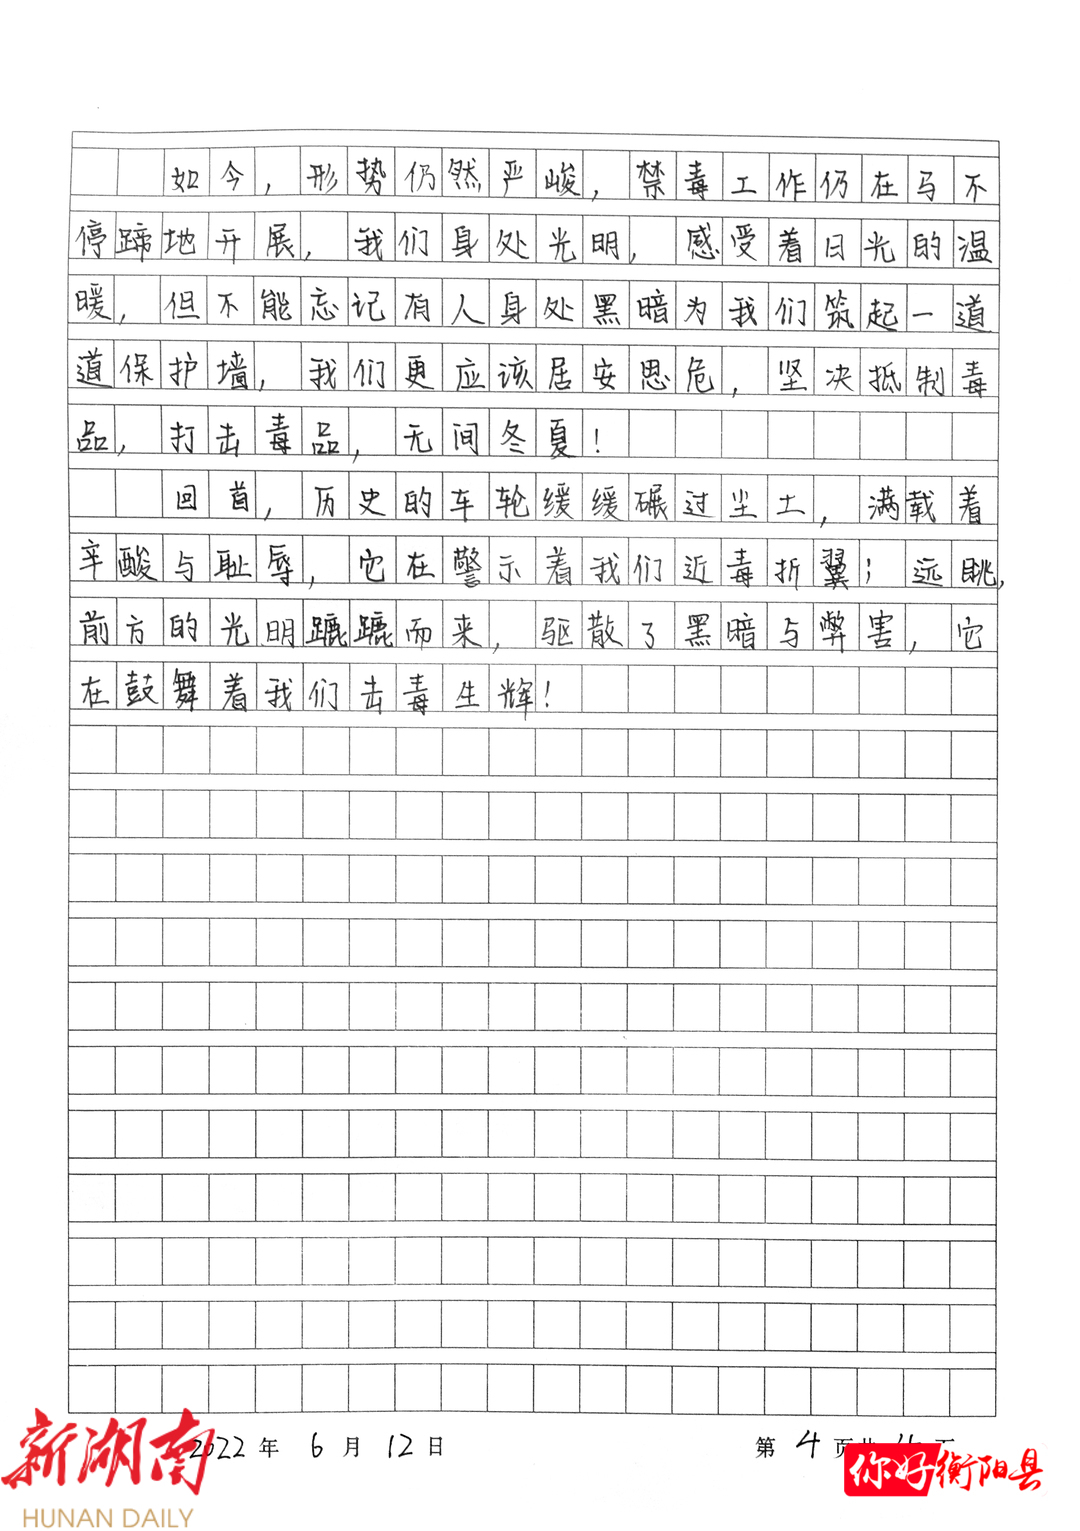 如今，形势仍然严峻，禁毒工作仍在马不
停蹄地开展，我们身处光明，感受着日光的温
暖，但不能忘记有人身处黑暗为我们筑起一道
道保护墙，我们更应该居安思危，坚决抵制毒
品，打击毒品，无间冬夏！
回首，历史的车轮缓缓碾过尘土，满载着
辛酸与耻辱，它在警示着我们近毒折翼；远眺，
前方的光明蹗蹗而来，驱散了黑暗与弊害，它
在鼓舞着我们击毒生辉！
2022年 6月 12日 第 4 页共 4 页
新湖南
HUNAN DAILY
你好衡阳县